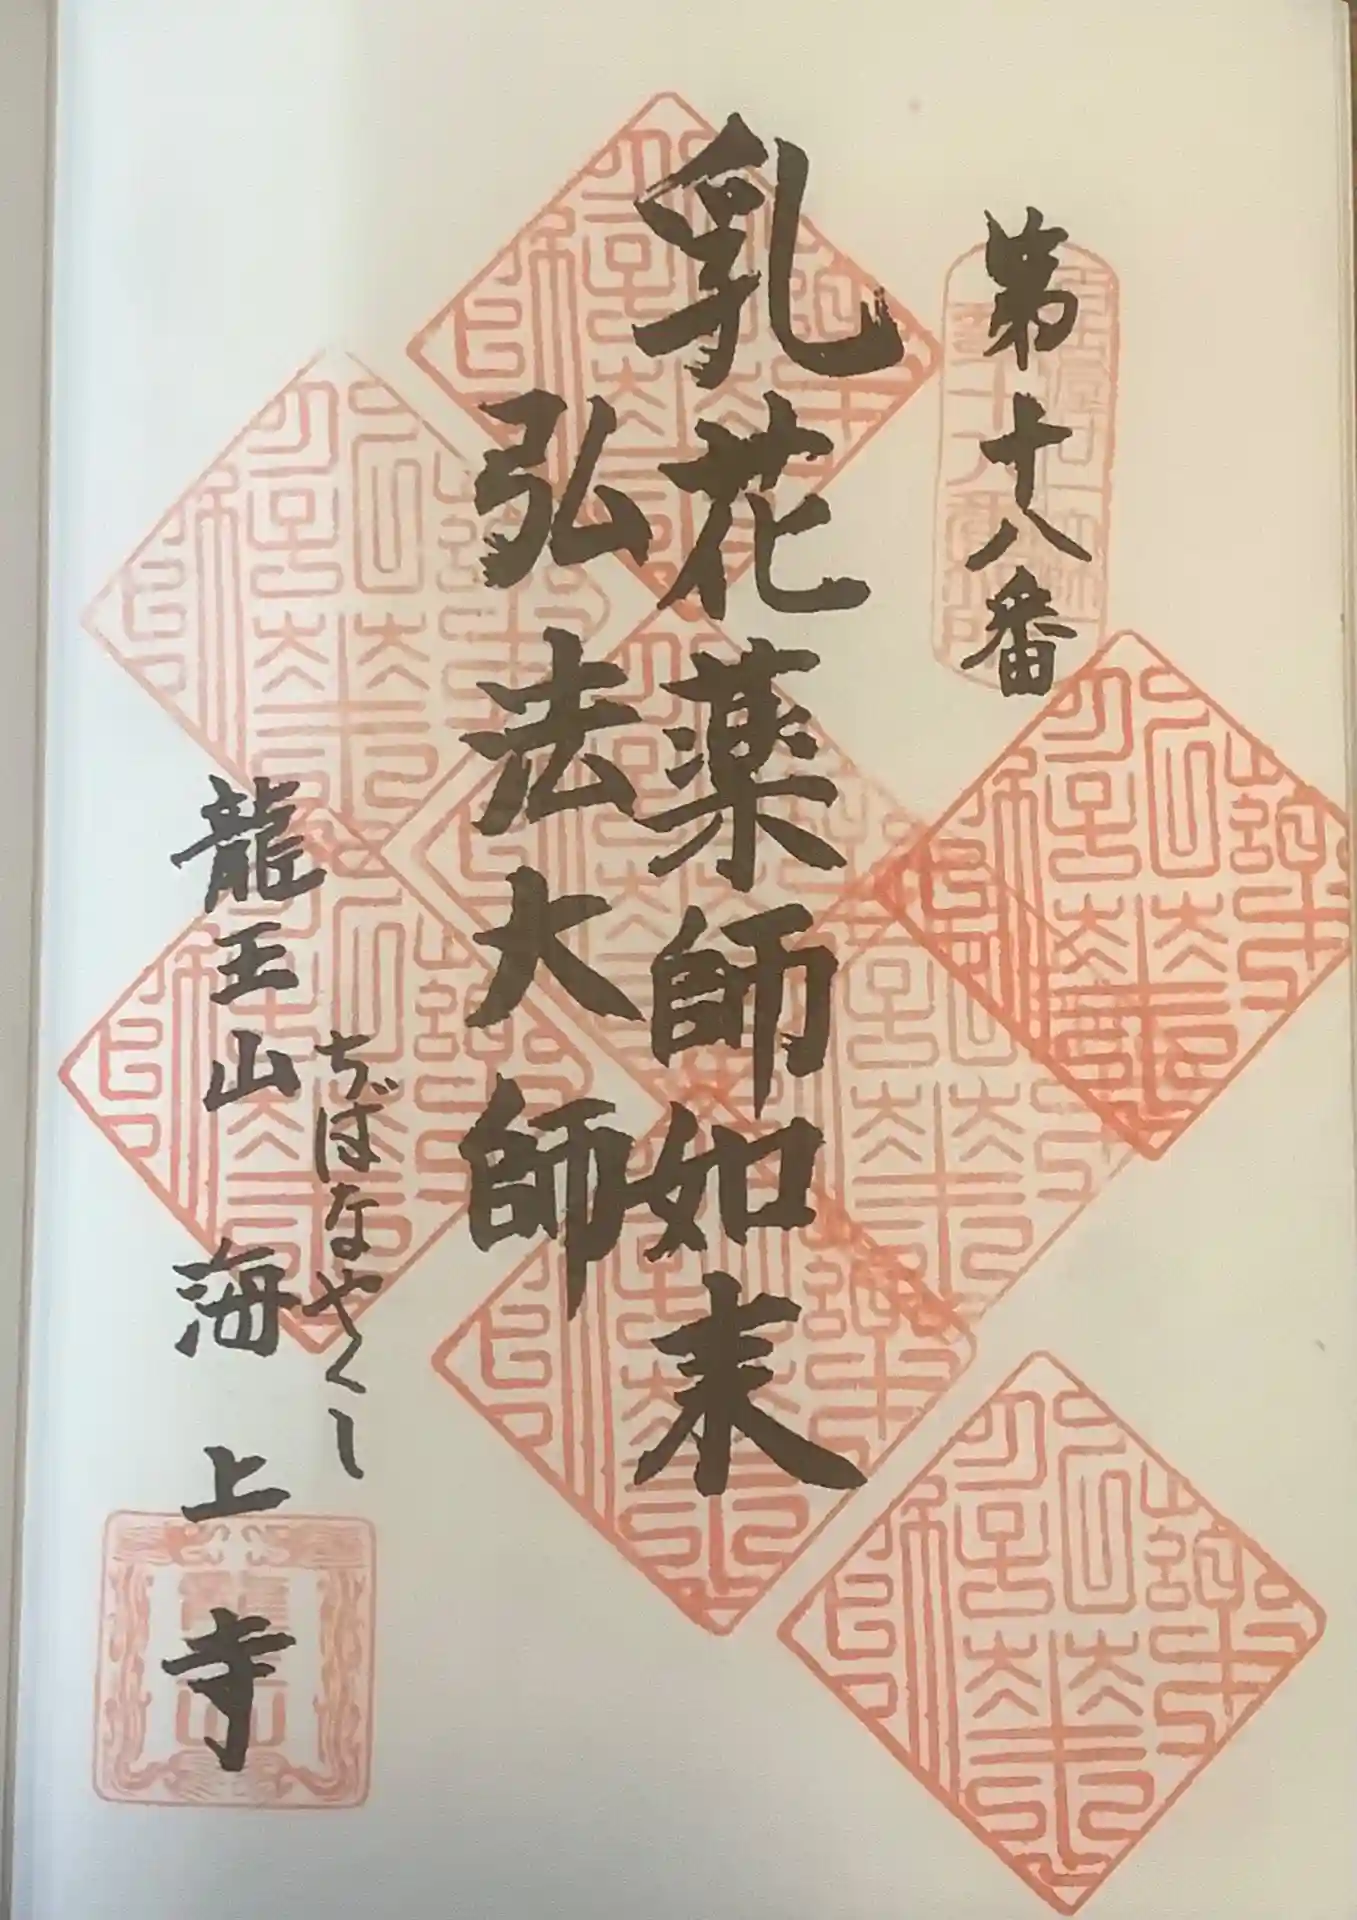 第十八番
乳花薬師如来
弘法大師
ちばなやくし
龍王山 海上寺